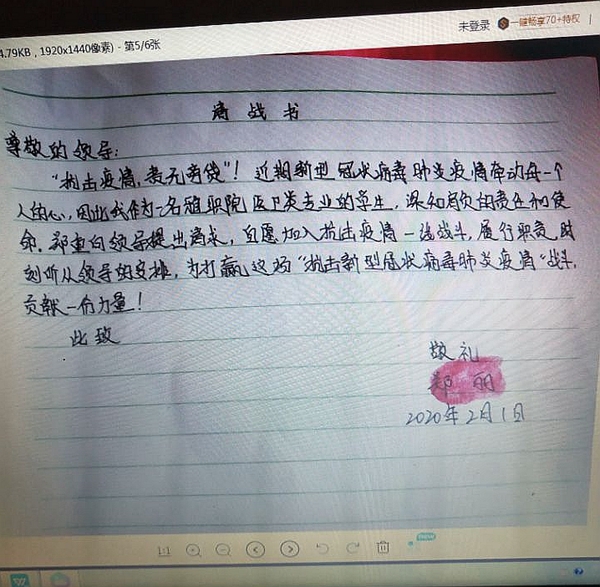 未登录 一键畅享70+特权
4.79KB，1920x1440像素) - 第5/6张
请战书
尊敬的领导:
"抗击疫情,责无旁贷"! 近期新型冠状病毒肺炎疫情牵动每一个
人的心,因此我作为一名随职院医卫类专业的学生,深知肩负的责任和使
命.郑重向领导提出请求,自愿加入抗击疫情一线战斗,履行职责,时
刻听从领导的安排,为打赢这场"抗击新型冠状病毒肺炎疫情"战斗,
贡献一份力量!
此致
敬礼
郑丽
2020年2月1日
1:1
new